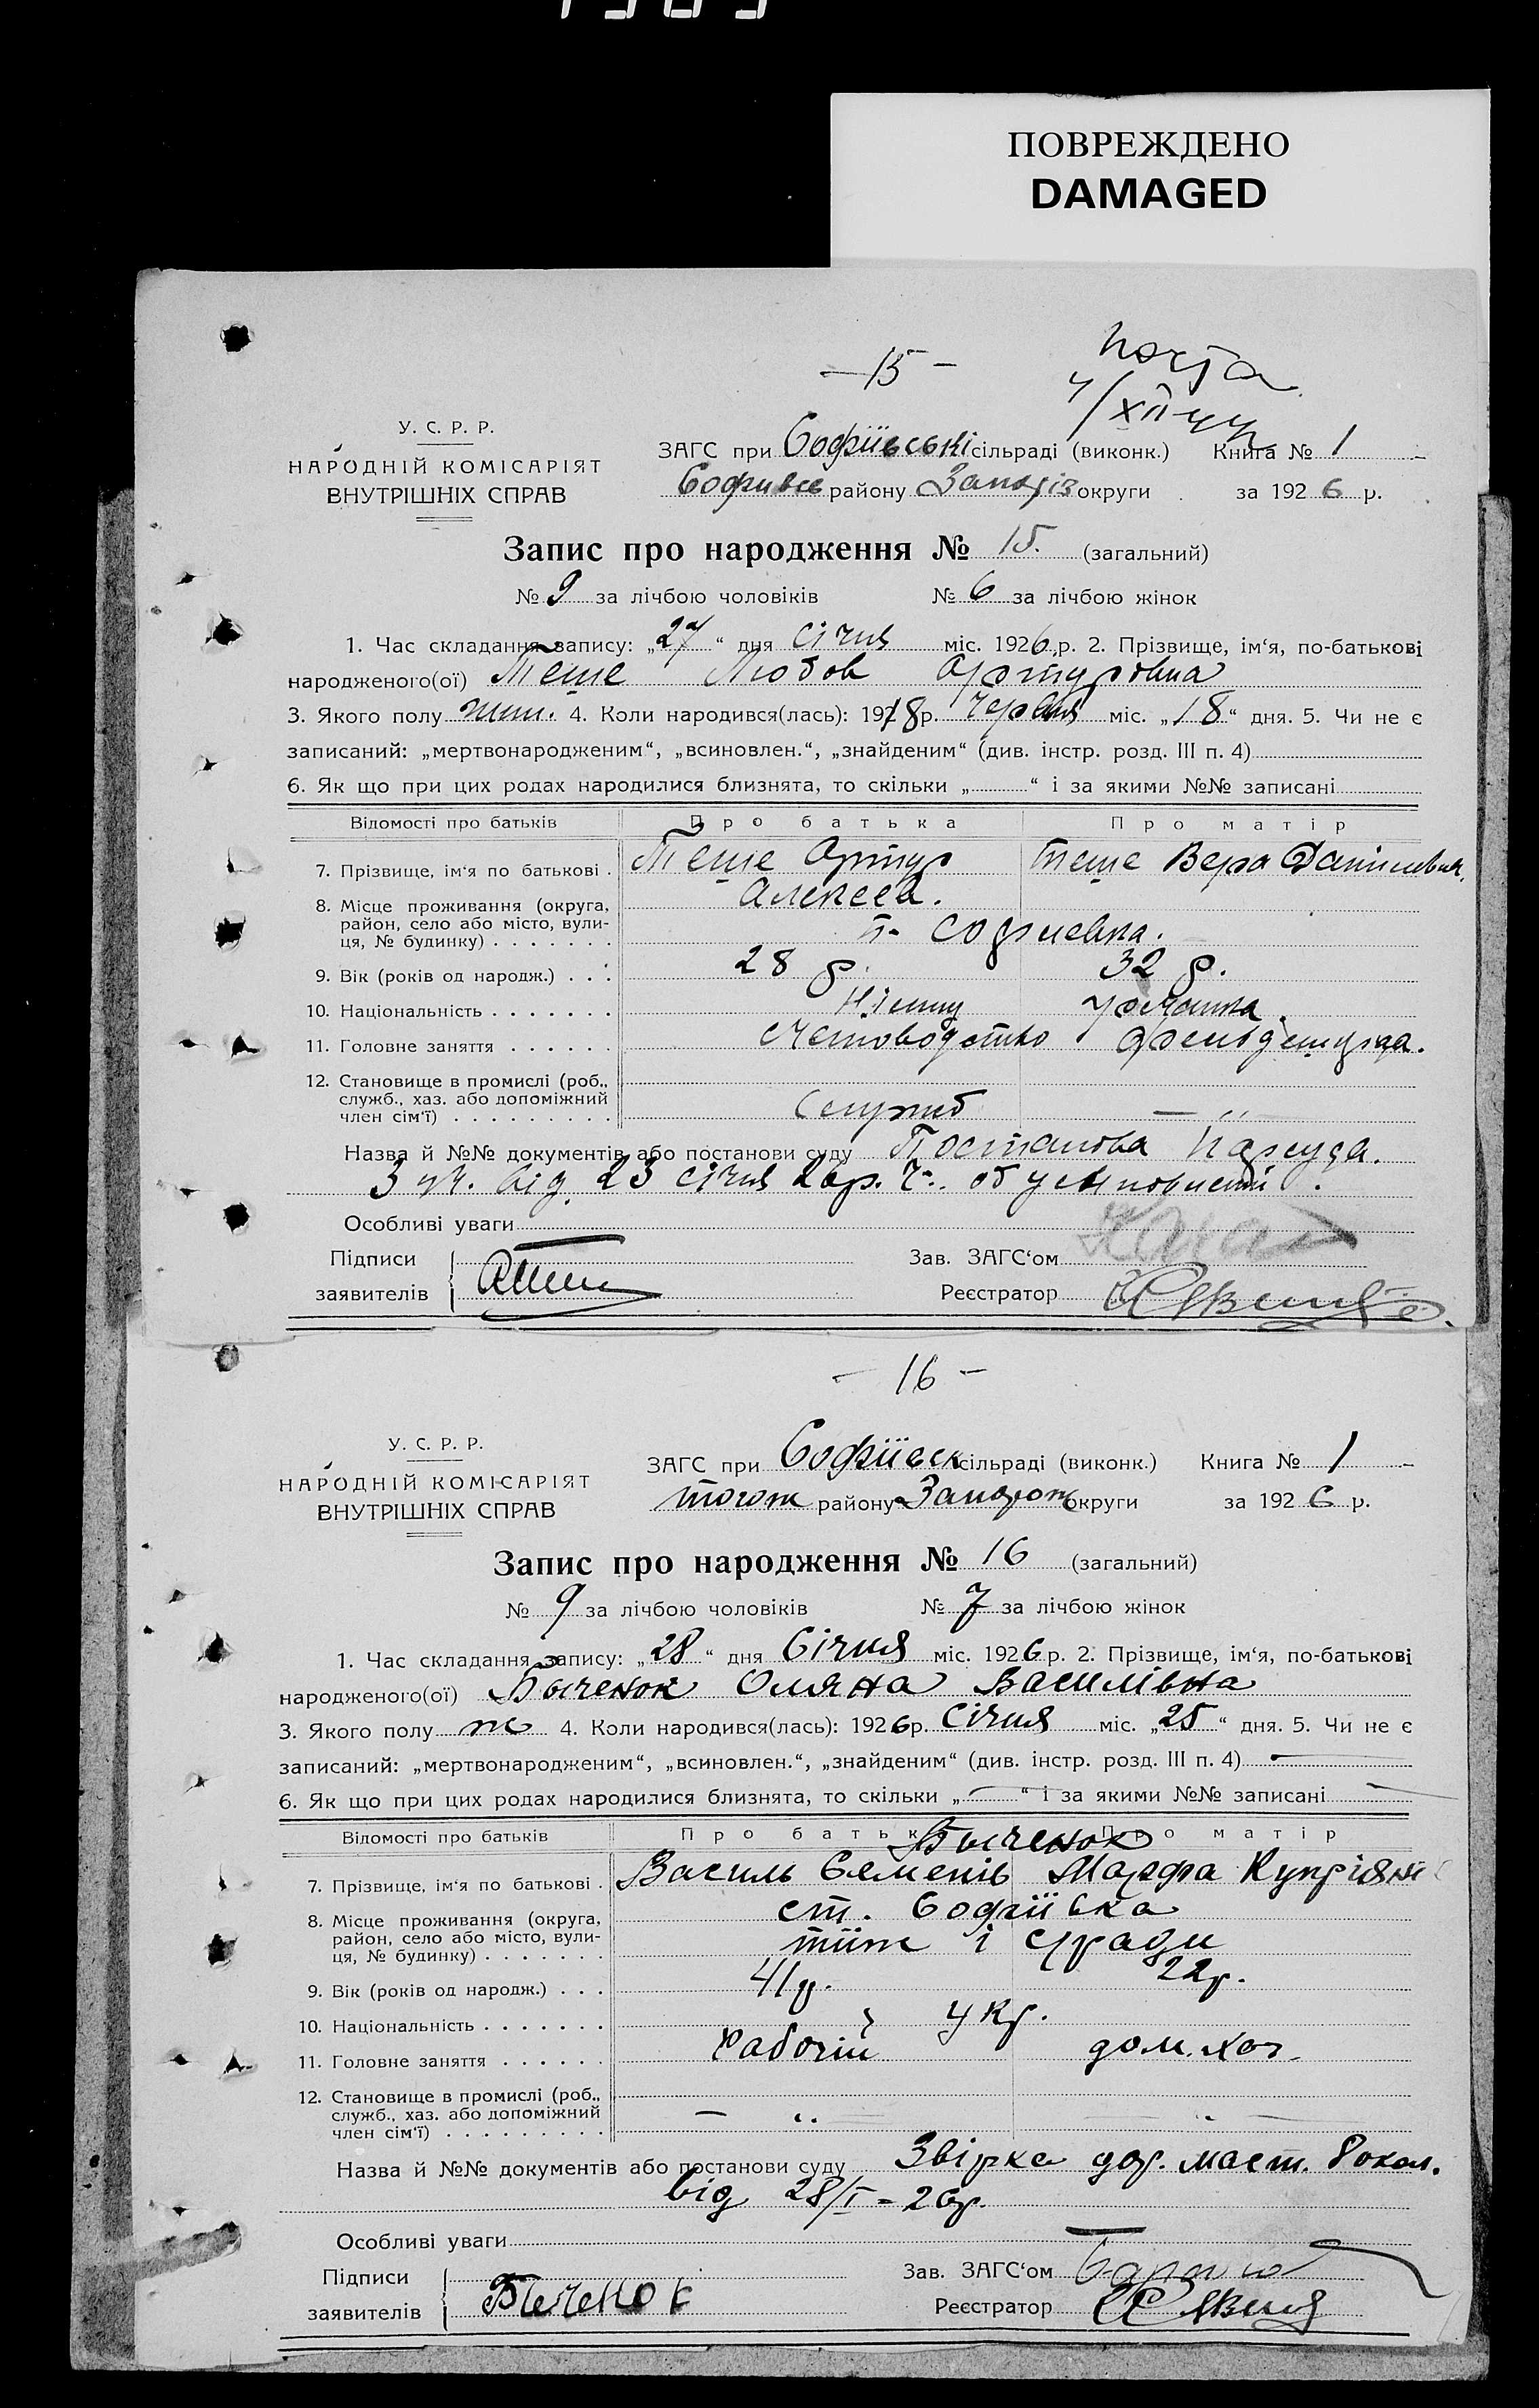 ПОВРЕЖДЕНО
DAMAGED
— 15 —
У. С. Р. Р.
НАРОДНІЙ КОМІСАРІЯТ
ВНУТРІШНІХ СПРАВ
ЗАГС при Софіївські сільраді (виконк.) Книга № 1
Софиивсь району Запоріз округи за 1926 р.
Запис про народження № 15. (загальний)
№ 9 за лічбою чоловіків № 6 за лічбою жінок
1. Час складання запису: „27“ дня січня міс. 1926 р. 2. Прізвище, ім‘я, по-батькові
народженого(ої) Теше Любов Артуровна
3. Якого полу жин. 4. Коли народився(лась): 1918 р. Червня міс. „18“ дня. 5. Чи не є
записаний: „мертвонародженим“, „всиновлен.“, „знайденим“ (див. інстр. розд. III п. 4)
6. Як що при цих родах народилися близнята, то скільки „ “ і за якими №№ записані
Відомості про батьків Про батька Про матір
7. Прізвище, ім‘я по батькові . Теше Артур Теше Вера Данилевна.
Алексеев.
8. Місце проживання (округа,
район, село або місто, вули-
ця, № будинку) . . . . . . . Софиевка.
9. Вік (років од народж.) . . . 28 р. 32 р.
10. Національність . . . . . . . Німець
11. Головне заняття . . . . . . Счетоводство Фельдшерица.
12. Становище в промислі (роб.,
служб., хаз. або допоміжний
член сім‘ї) . . . . . . . . . Служб — „ —
Назва й №№ документів або постанови суду Постанова Нарсуда.
3 уч. від 23 січня 26 р.
Особливі уваги
Підписи
заявителів
Зав. ЗАГС‘ом
Реєстратор
— 16 —
У. С. Р. Р.
НАРОДНІЙ КОМІСАРІЯТ
ВНУТРІШНІХ СПРАВ
ЗАГС при Софіївск сільраді (виконк.) Книга № 1
тогож району Запорож округи за 1926 р.
Запис про народження № 16 (загальний)
№ 9 за лічбою чоловіків № 7 за лічбою жінок
1. Час складання запису: „28“ дня Січня міс. 1926 р. 2. Прізвище, ім‘я, по-батькові
народженого(ої) Быченок Оляна Василівна
3. Якого полу ж 4. Коли народився(лась): 1926 р. Січня міс. „25“ дня. 5. Чи не є
записаний: „мертвонародженим“, „всиновлен.“, „знайденим“ (див. інстр. розд. III п. 4) —
6. Як що при цих родах народилися близнята, то скільки „—“ і за якими №№ записані —
Відомості про батьків Про батька Про матір
Быченок
7. Прізвище, ім‘я по батькові . Василь Семенів Марфа Купріяні
8. Місце проживання (округа,
район, село або місто, вули-
ця, № будинку) . . . . . . . ст. Софіївка
тіиж і сгради
9. Вік (років од народж.) . . . 41 р. 22 р.
10. Національність . . . . . . . укр.
11. Головне заняття . . . . . . рабочій дом. хоз.
12. Становище в промислі (роб.,
служб., хаз. або допоміжний
член сім‘ї) . . . . . . . . . — „ — — „ —
Назва й №№ документів або постанови суду Звірка дор. маст.
від 28/I - 26 р.
Особливі уваги
Підписи
заявителів Быченок
Зав. ЗАГС‘ом
Реєстратор